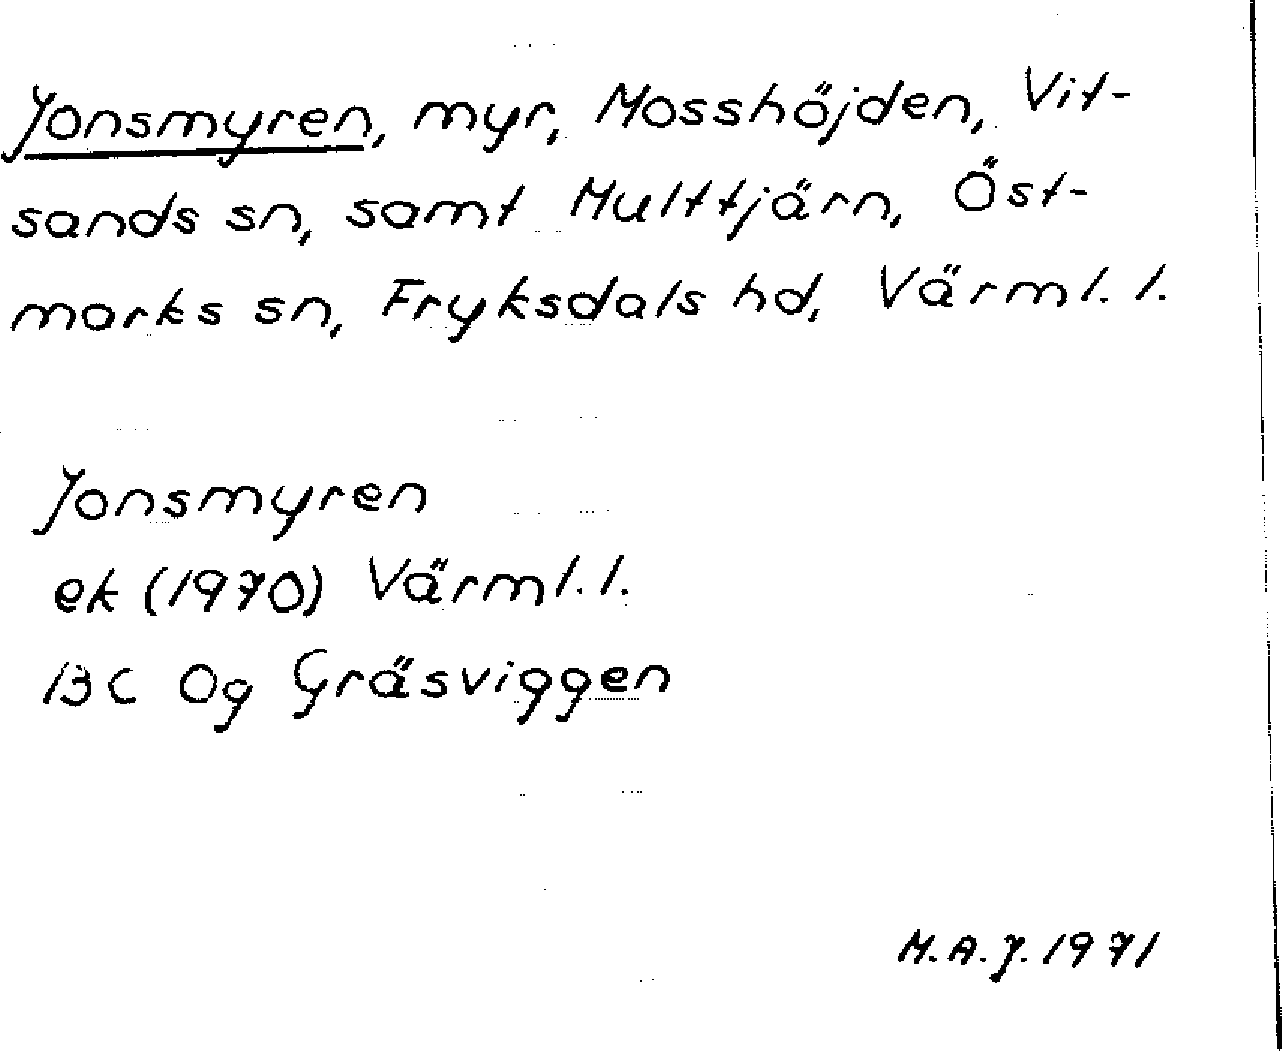 Jonsmyren, myr, Mosshöjden, Vit-
sands sn, samt Multtjärn, Öst-
marks sn, Fryksdals hd, Värml. l.
Jonsmyren
ek (1970) Värml. l.
13 C 0g Gräsviggen
M.A.J. 1971